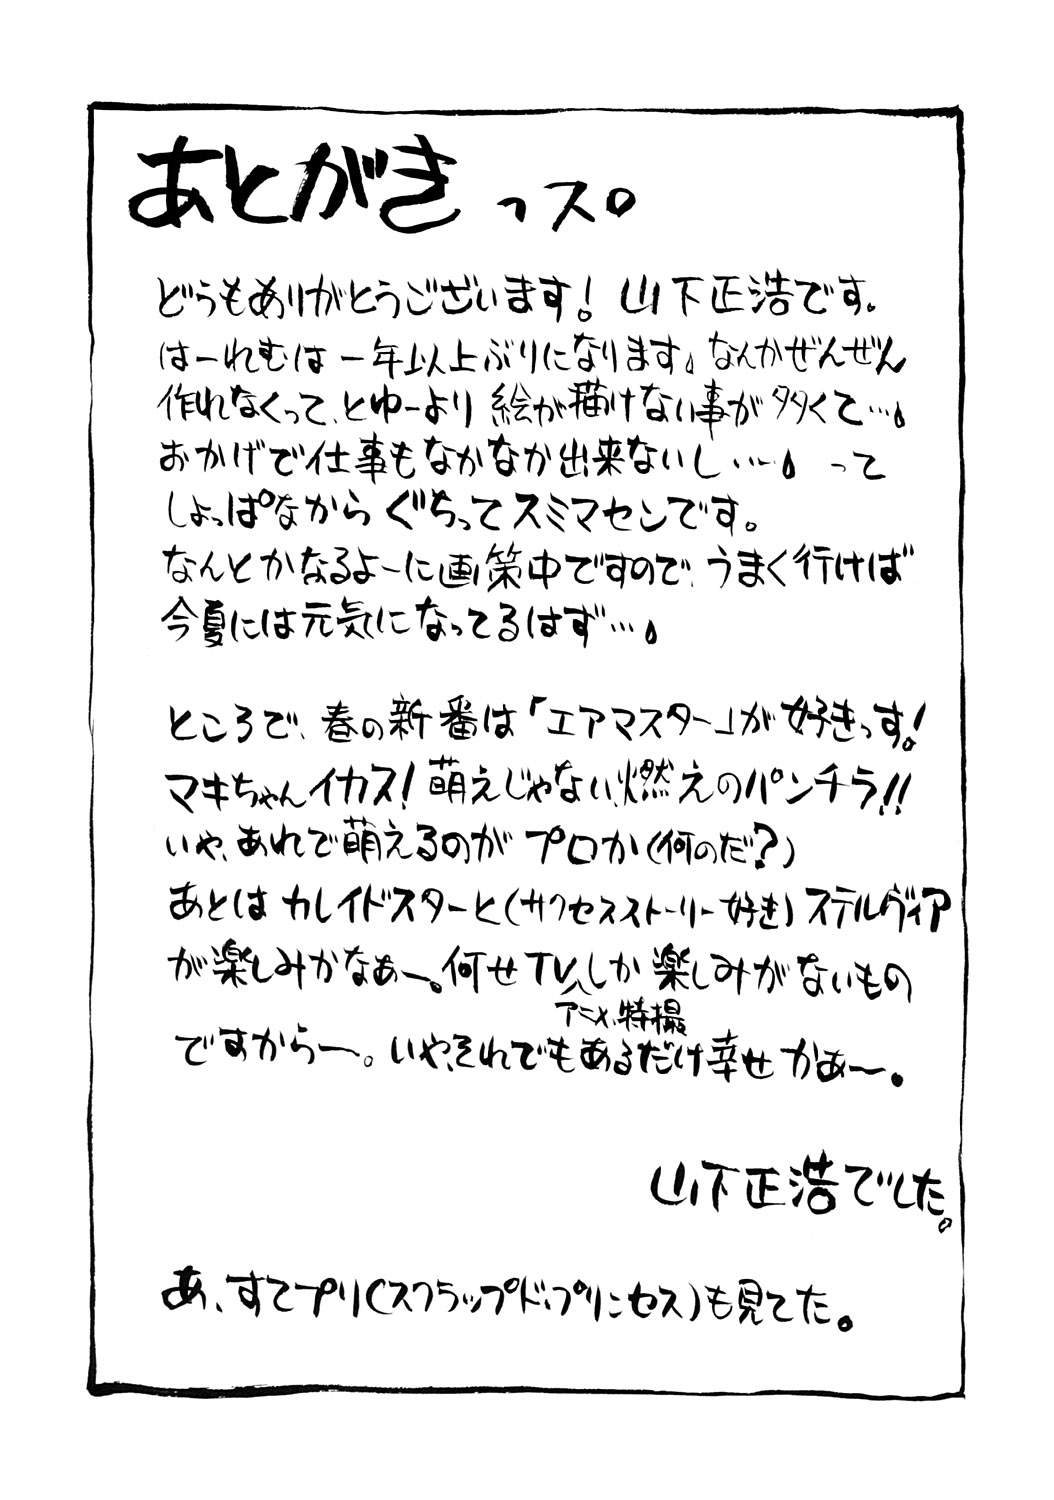 あとがきっス。
どうもありがとうございます！山下正浩です。
はーれむは一年以上ぶりになります。なんかぜんぜん
作れなくって、とゆーより絵が描けない事が多くて…。
おかげで仕事もなかなか出来ないし…。って
しょっぱなからぐちってスミマセンです。
なんとかなるよーに画策中ですので、うまく行けば
今夏には元気になってるはず…。
ところで、春の新番は「エアマスター」が好きっす！
マキちゃんイカス！萌えじゃない、燃えのパンチラ！！
いや、あれで萌えるのがプロか（何のだ？）
あとはカレイドスターと（サクセスストーリー好き）ステルヴィア
が楽しみかなぁー。何せTVしか楽しみがないもの
アニメ、特撮
ですからー。いや、それでもあるだけ幸せかぁ～。
山下正浩でした。
あ、すてプリ（スクラップド・プリンセス）も見てた。